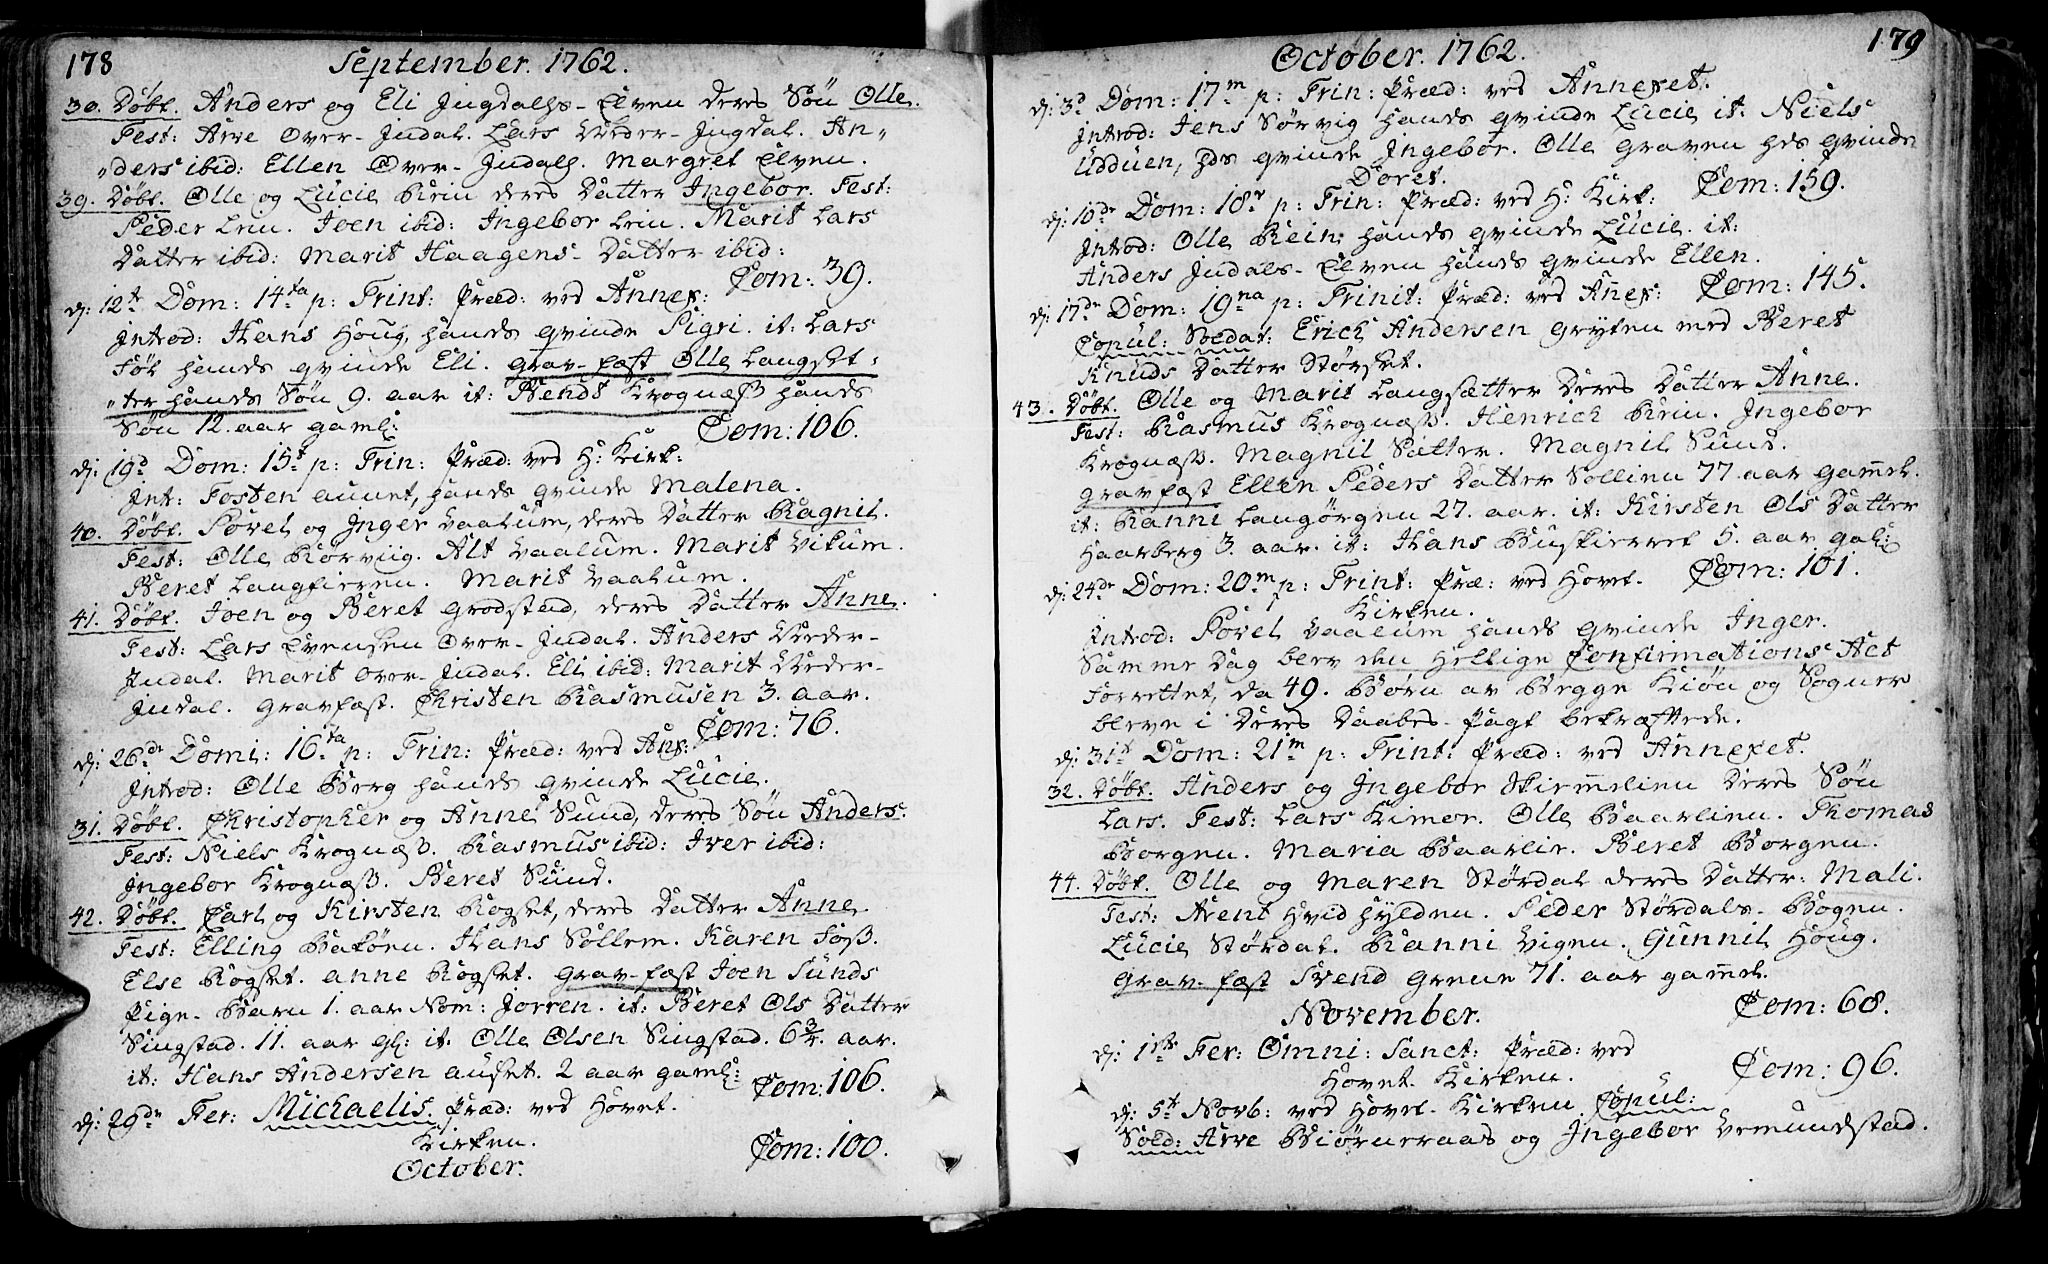 178
September. 1762.
30. Döbt. Anders og Eli Jngdalhs-Elven deres Sön Olle.
Test: Arve Over-Jndal. Lars Neder-Jngdal. An„
„ders ibid: Ellen Over-Jndalh. Margret Elven.
39. Döbt. Olle og Lucie Krin deres Datter Jngebor. Test:
Peder Lein. Joen ibid: Jngebor Lein. Marit Lars
Datter ibid: Marit Haagens-Datter ibid:
Com: 39.
dj: 12te Dom: 14ta p: Trint: Præd: ved Annex:
Jntrod: Hans Houg, hands qvinde Sigri. it: Lars
Föl hands qvinde Eli. Grav-fæst Olle Langset„
„ter hands Sön 9. aar it: Bendt Krognæss hands
Sön 12. aar gaml:
Com: 106.
dj: 19d Dom: 15t p: Trin: Præd: ved H: Kirk:
Jnt: Tosten aunet, hands qvinde Malena.
40. Döbt. Povel og Jnger Vaalum, deres Datter Ragnil.
Test: Olle Körviig. Alt Vaalum. Marit Vikum.
Beret Langlieren. Marit Vaalum.
41. Döbt. Joen og Beret Grodstad, deres Datter Anne.
Test: Lars Evensen Over-Jndal. Anders Neder-
Jndal. Marit Over-Jndal. Eli ibid: Marit Neder-
Jndal. Gravfæst. Christen Rasmusen 3. aar.
Com: 76.
dj: 26de Domi: 16ta p: Trin: Præd: ved Anx:
Jntrod: Olle Berg hands qvinde Lucie.
31. Döbt. Christopher og Anne Sund, deres Sön Anders.
Test: Niels Krognæss. Rasmus ibid: Iver ibid:
Jngebor Krognæss. Beret Sund.
42. Döbt. Carl og Kirsten Rogset, deres Datter Anne
Test: Elling Baköen. Hans Sollem. Karen Foss.
Else Rogset. Anne Rogset. Grav-fæst Joen Sunds
Pige-Barn 1. aar Nom: Jorren. it: Beret Ols Datter
Singstad. 11. aar gl: it: Olle Olsen Singstad. 6¾. aar.
it: Hans Andersen auset. 2 aar gaml:
Com: 106.
dj: 29de Fer: Michaelis. Præd: ved Hovet.
Kirken.
Com: 100.
October.
179
October. 1762.
dj: 3d Dom: 17m p: Trin: Præd: ved Annexet.
Jntrod: Jens Sörvig hands qvinde Lucie it: Niels
Udduen, hds qvinde Jngebor. Olle Graven hds qvinde
Doret.
Com: 159.
dj: 10de Dom: 18v p: Trin: Præd: ved H: Kirk:
Jntrod: Olle Krin hands qvinde Lucie. it:
Anders Jndals-Elven hands qvinde Ellen.
Com: 145.
dj: 17de Dom: 19na p: Trinit: Præd: ved Añex:
Copul: Soldat: Erich Andersen Gryten med Beret
Knuds Datter Störset.
43. Döbt. Olle og Marit Langsætter Deres Datter Anne.
Test: Rasmus Krognæss. Henrich Krin. Jngebor
Krognæss. Magnil Sætter. Magnil Sund.
Gravfæst Ellen Peders Datter Sollien 77. aar gam̄el.
it: Ranni Langörgen 27. aar. it: Kirsten Ols Datter
Haarberg 3. aar. it: Hans Buskierret 5. aar gal:
Com: 101.
dj: 24de Dom: 20m p: Trint: Præ: ved Hovet-
Kirken.
Jntrod: Povel Vaalum hands qvinde Jnger.
Samme Dag blev den Hellige Confirmations Act
Forrettet, da 49. Börn av Begge Kiön og Sogner
bleve i Deres Daabes-Pagt bekræftede.
dj: 31t Dom: 21m p: Trint: Præd: ved Annexet.
32. Döbt. Anders og Jngebor Skiem̄elien Deres Sön
Lars. Test: Lars Kimer. Olle Baarlien. Thomas
Borgen. Maria Baarlie. Beret Borgen.
44. Döbt. Olle og Maren Stördal deres Datter. Mali.
Test: Arent Hvid Hylden. Peder Stördals-Bogen.
Lucie Stördal. Ranni Vigen. Gunnil Houg.
Grav-fæst Svend Grene 71. aar gam̄el.
Com: 68.
November.
dj: 1ste Fer: Omni: Sanct: Præd: ved
Hovet-Kirken.
Com: 96.
dj: 5te Novb: ved Hovet-Kirken Copul:
Sold: Arve Biörneraas og Jngebor Vemundstad.